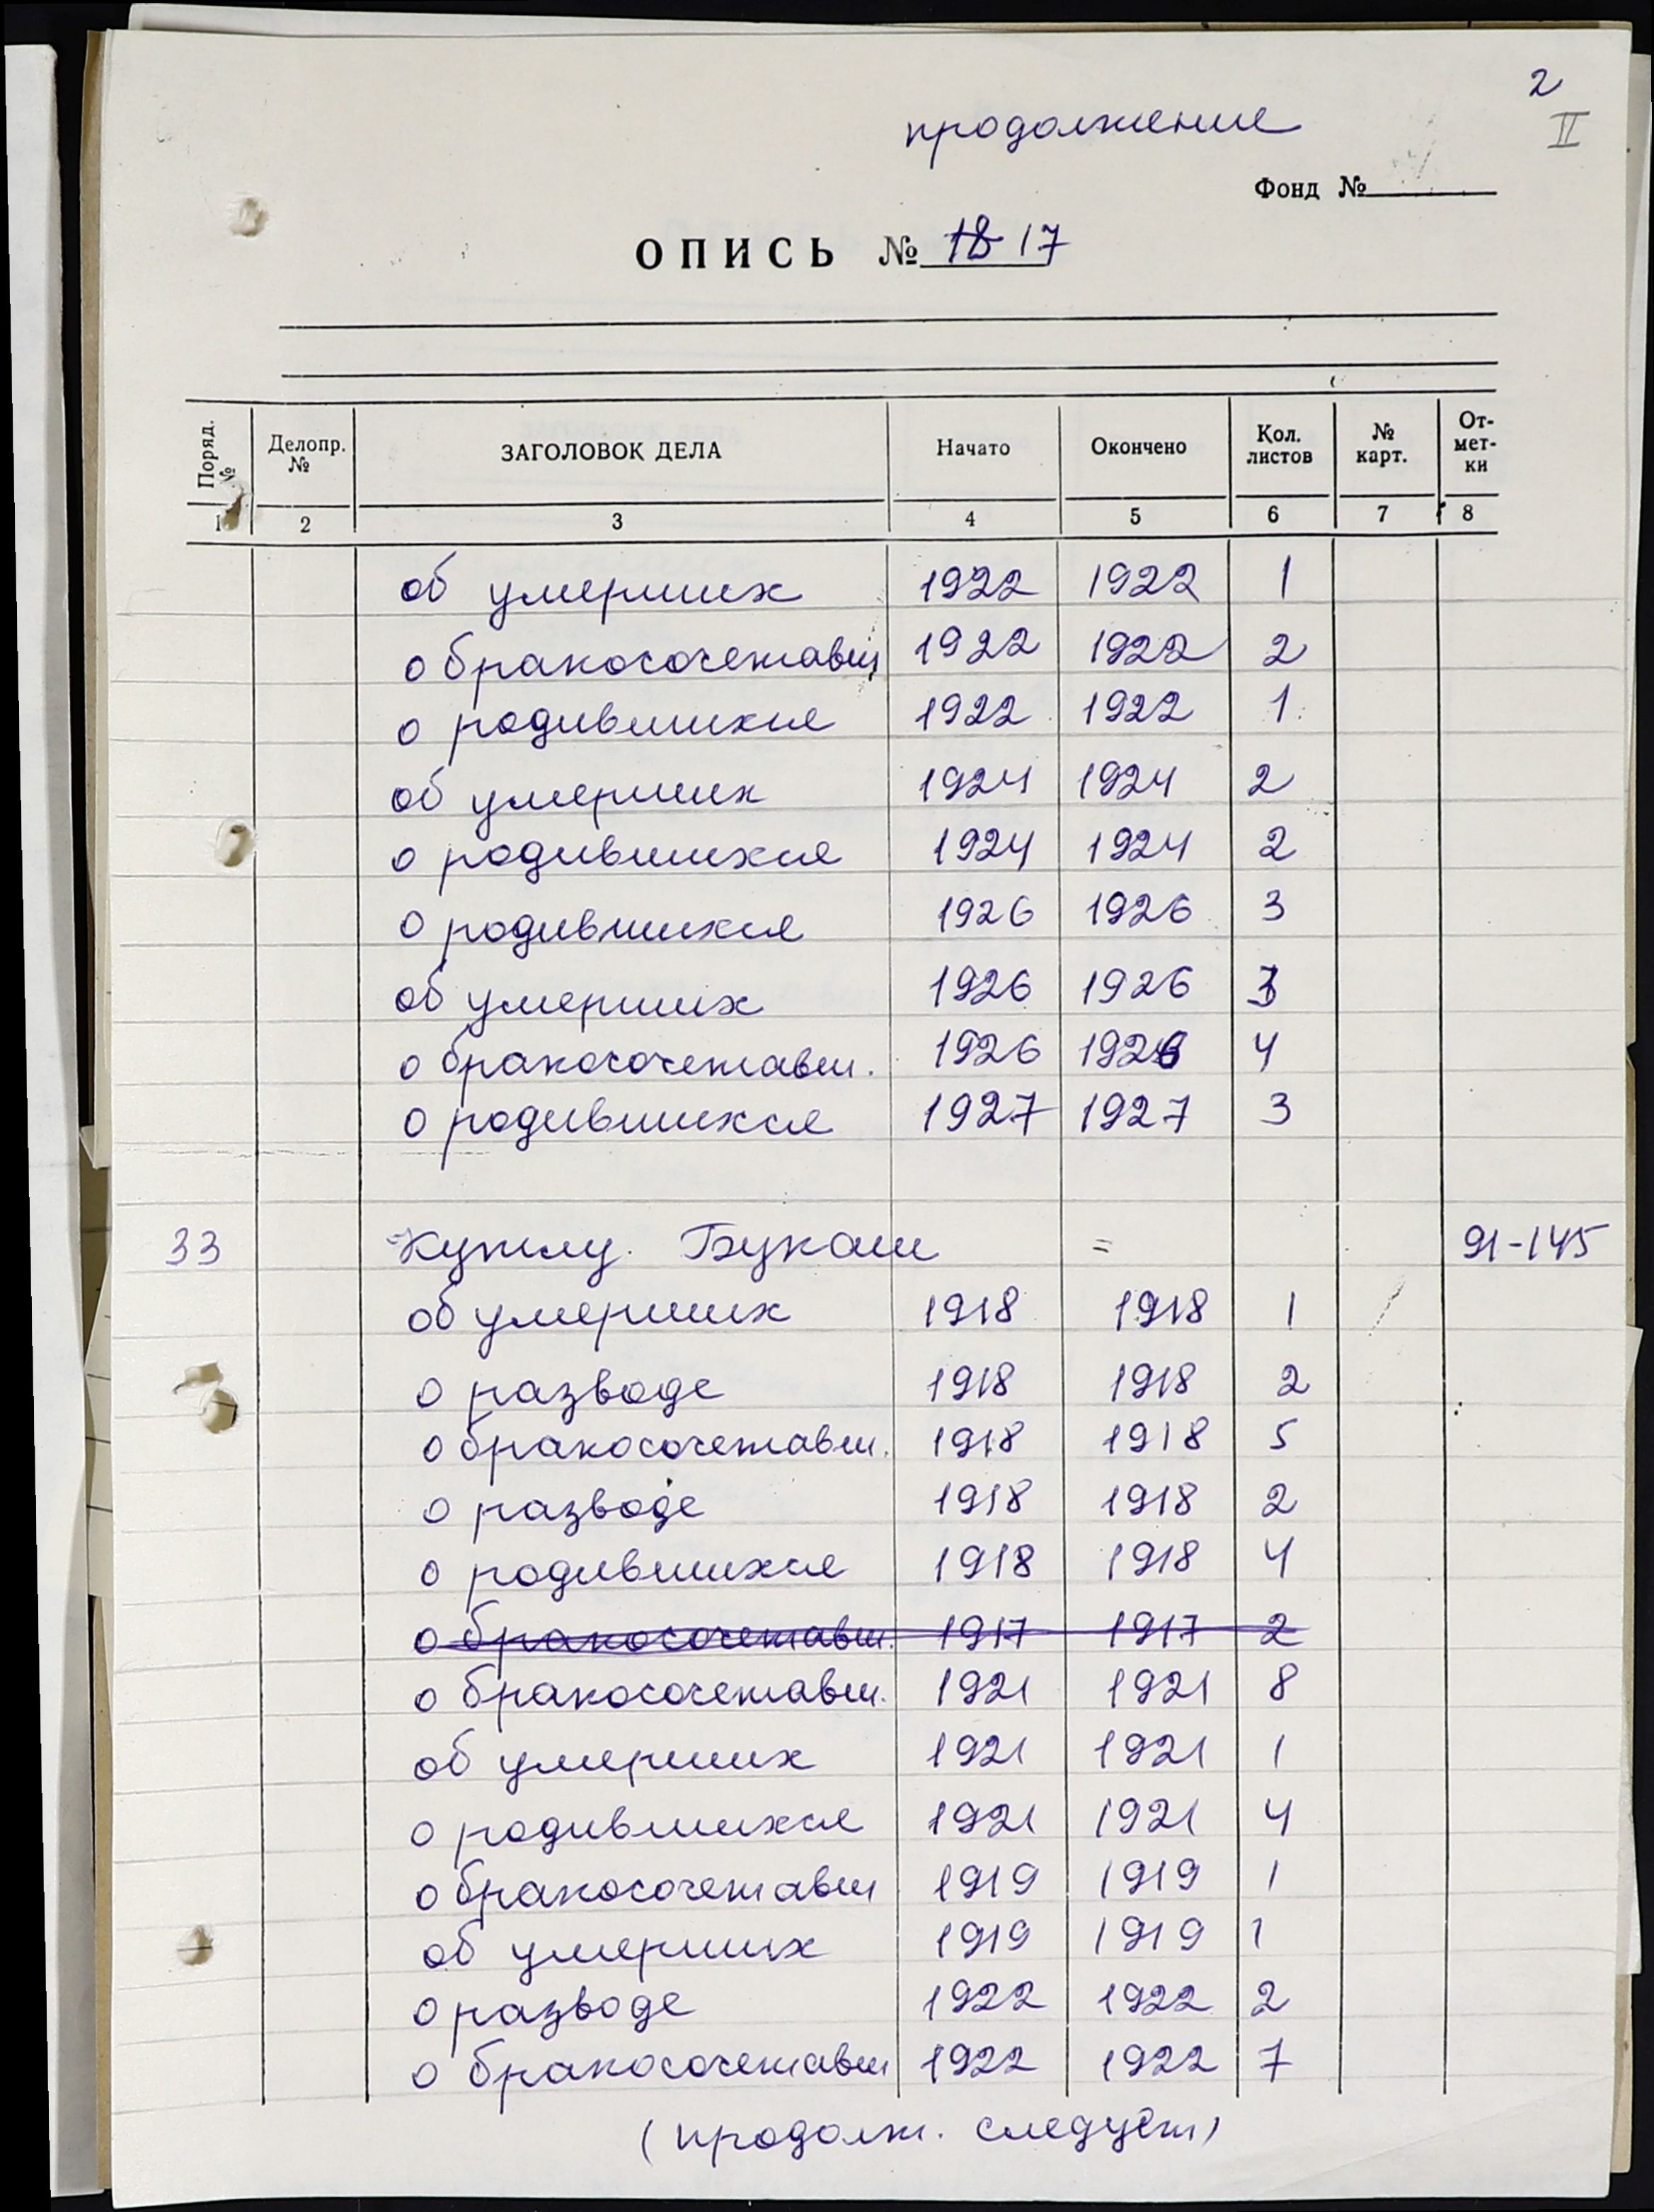 2
II
продолжение
Фонд №
ОПИСЬ № 18 17
Поряд. № Делопр. № ЗАГОЛОВОК ДЕЛА Начато Окончено Кол. листов № карт. От-мет-ки
1 2 3 4 5 6 7 8
об умерших 1922 1922 1
о бракосочетавш 1922 1922 2
о родившихся 1922 1922 1
об умерших 1924 1924 2
о родившихся 1924 1924 2
о родившихся 1926 1926 3
об умерших 1926 1926 3
о бракосочетавш. 1926 1926 4
о родившихся 1927 1927 3
33 Кутлу. Букаш = 91-145
об умерших 1918 1918 1
о разводе 1918 1918 2
о бракосочетавш. 1918 1918 5
о разводе 1918 1918 2
о родившихся 1918 1918 4
о бракосочетавш. 1917 1917 2
о бракосочетавш. 1921 1921 8
об умерших 1921 1921 1
о родившихся 1921 1921 4
о бракосочетавш 1919 1919 1
об умерших 1919 1919 1
о разводе 1922 1922 2
о бракосочетавш 1922 1922 7
(продолж. следует)